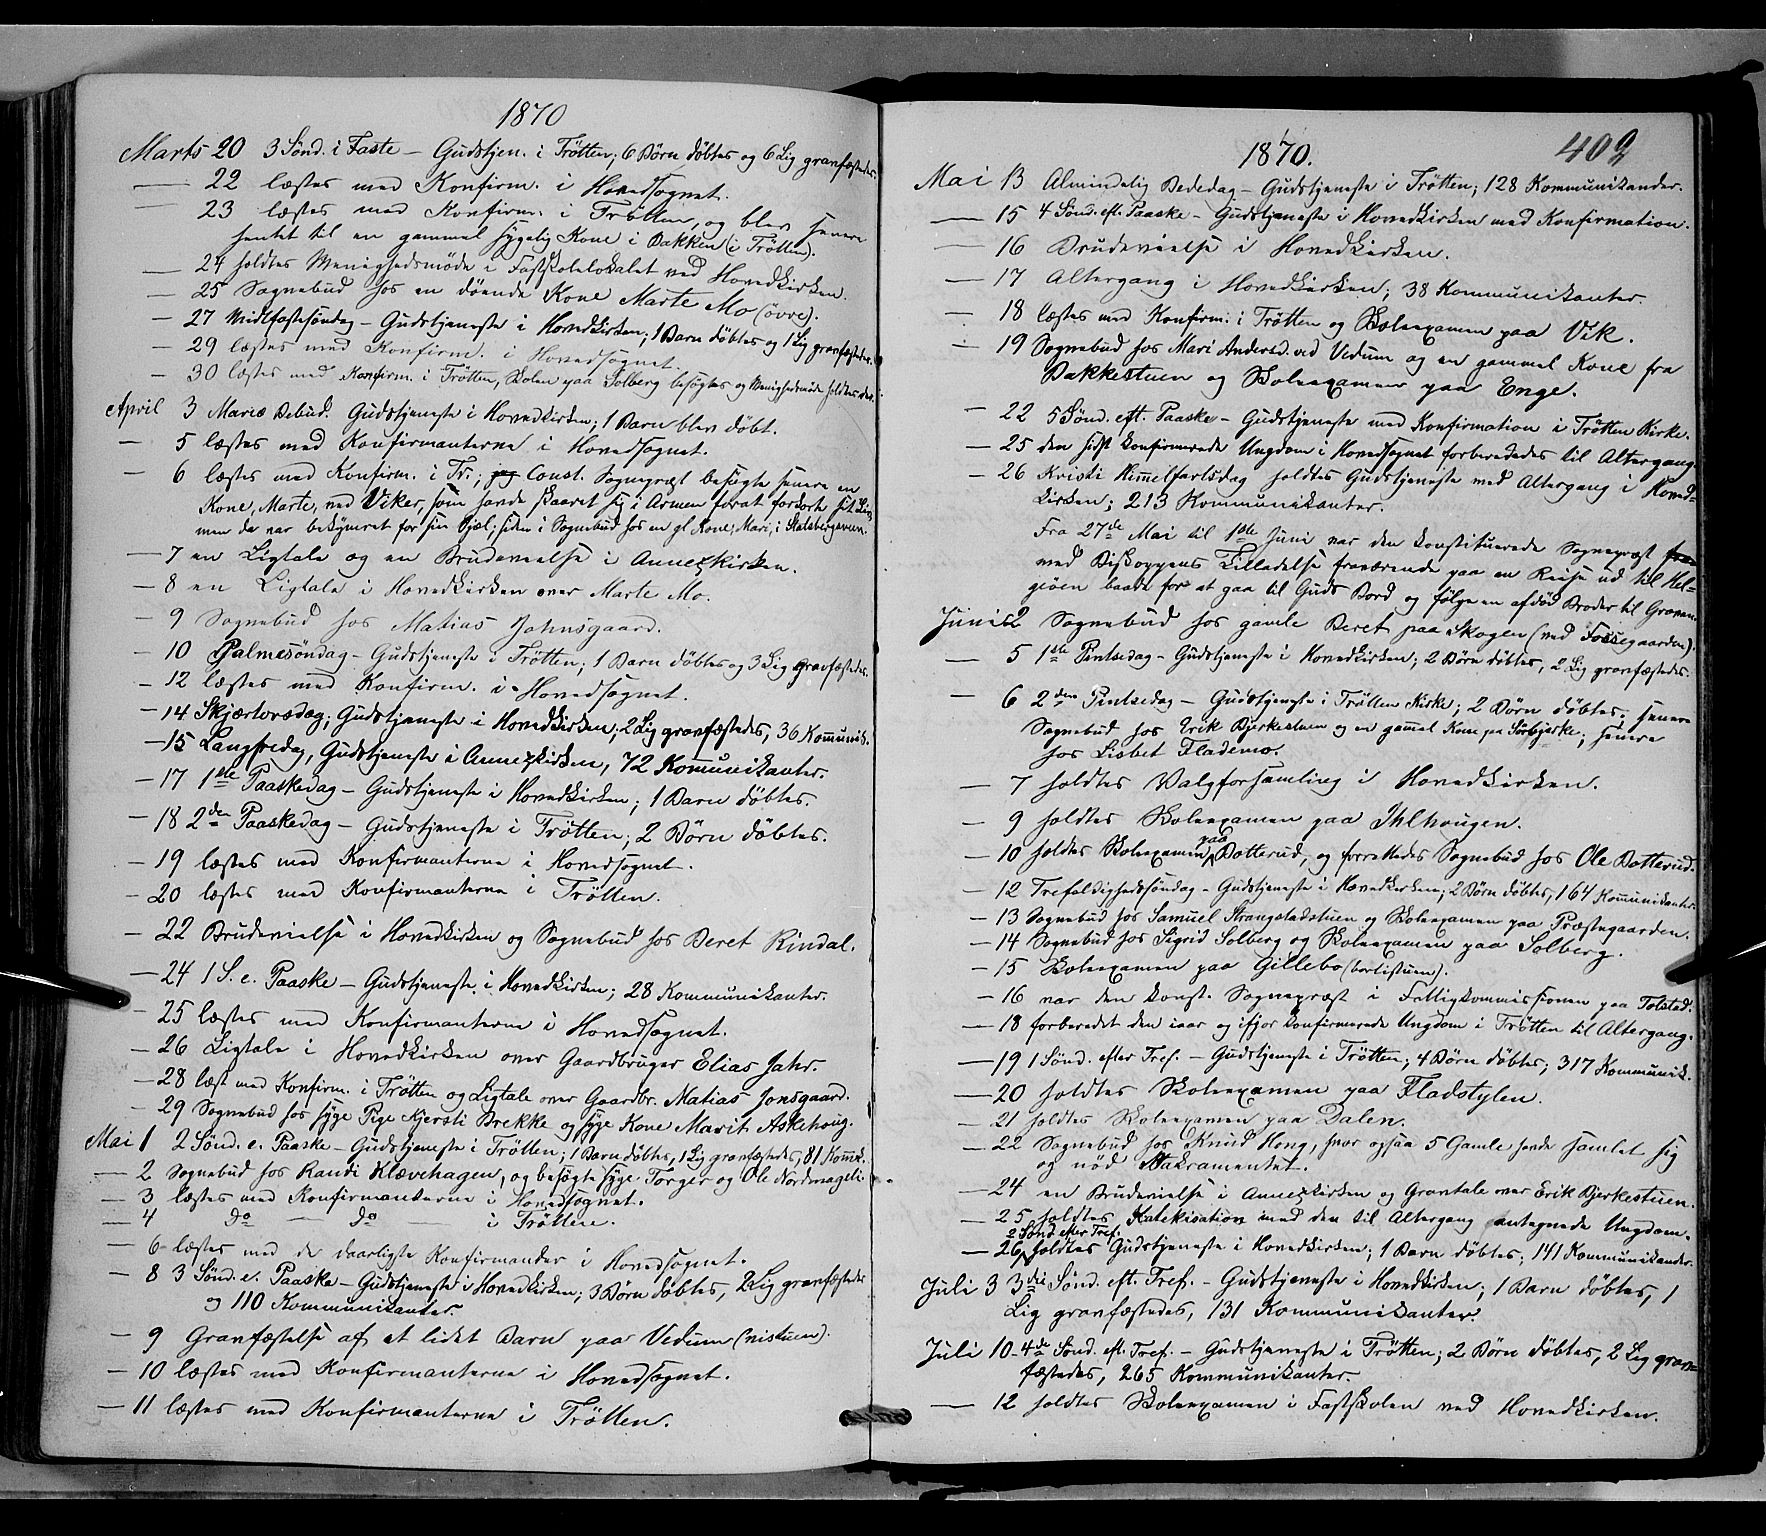 1870
Marts 20 3 Sönd. i Faste – Gudstjen. i Trötten; 6 Börn döbtes og 6 Lig gravfæstedes.
— 22 læstes med Konfirm. i Hovedsognet.
— 23 læstes med Konfirm. i Trötten, og blev senere
hentet til en gammel sygelig Kone i Bakken (i Trötten).
— 24 holdtes Menighedsmöde i Fastskolelokalet ved Hovedkirken.
— 25 Sognebud hos en döende Kone Marte Mo (övre).
— 27 Midfastesöndag – Gudstjeneste i Hovedkirken; 1 Barn döbtes og 1 Lig gravfæstedes.
— 29 læstes med Konfirm. i Hovedsognet.
— 30 læstes med Konfirm. i Trötten, Skolen paa Solberg besögtes og Menighedsmöde holdtes der.
April 3 Mariæ Bebud. Gudstjeneste i Hovedkirken; 1 Barn blev döbt.
— 5 læstes med Konfirmanterne i Hovedsognet.
— 6 læstes med Konfirm. i Tr.; Const. Sognepræst besögte senere en
Kone, Marte, ved Viker, som havde skaaret sig i Armen forat forkorte sit Liv,
men da var bekymret for sin Sjæl; siden i Sognebud hos en gl. Kone, Mari, i
— 7 en Ligtale og en Brudevielse i Annexkirken.
— 8 en Ligtale i Hovedkirken over Marte Mo.
— 9 Sognebud hos Matias Johnsgaard.
— 10 Palmesöndag – Gudstjeneste i Trötten; 1 Barn döbtes og 3 Lig gravfæstedes.
— 12 læstes med Konfirm. i Hovedsognet.
— 14 Skjærtorsdag; Gudstjeneste i Hovedkirken; 2 Lig gravfæstedes, 36 Kommunik.
— 15 Langfredag, Gudstjeneste i Annexkirken, 72 Kommunikanter.
— 17 1ste Paaskedag – Gudstjeneste i Hovedkirken; 1 Barn döbtes.
— 18 2den Paaskedag – Gudstjeneste i Trötten; 2 Börn döbtes.
— 19 læstes med Konfirmanterne i Hovedsognet.
— 20 læstes med Konfirmanterne i Trötten.
— 22 Brudevielse i Hovedkirken og Sognebud hos Beret Rindal.
— 24 1 S. e. Paaske – Gudstjeneste i Hovedkirken; 28 Kommunikanter.
— 25 læstes med Konfirmanterne i Hovedsognet.
— 26 Ligtale i Hovedkirken over Gaardbruger Elias Jahr.
— 28 læst med Konfirm. i Trötten og Ligtale over Gaardbr. Matias Jonsgaard.
— 29 Sognebud hos syge Pige Kjersti Brekke og syge Kone Marit Askehoug.
Mai 1 2 Sönd. e. Paaske – Gudstjeneste i Trötten; 1 Barn döbtes, 1 Lig gravfæstedes, 81 Komm.
— 2 Sognebud hos Randi Klævehagen, og besögte syge Torger og Ole Nordmageli
— 3 læstes med Konfirmanterne i Hovedsognet.
— 4 Do — Do — i Trötten.
— 6 læstes med de daarligste Konfirmander i Hovedsognet.
— 8 3 Sönd. e. Paaske – Gudstjeneste i Hovedkirken; 3 Börn döbtes, 2 Lig gravfæstedes
og 110 Kommunikanter.
— 9 Gravfæstelse af et lidet Barn paa Vedum (nistuen).
— 10 læstes med Konfirmanterne i Hovedsognet.
— 11 læstes med Konfirmanterne i Trötten.
402
1870.
Mai 13 Almindelig Bededag – Gudstjeneste i Trötten; 128 Kommunikander.
— 15 4 Sönd. eft. Paaske – Gudstjeneste i Hovedkirken med Konfirmation.
— 16 Brudevielse i Hovedkirken.
— 17 Altergang i Hovedkirken; 38 Kommunikanter.
— 18 læstes med Konfirm. i Trötten og Skoleexamen paa Vik.
— 19 Sognebud hos Mari Andersd. ved Vedum og en gammel Kone fra
Bakkestuen og Skoleexamen paa Enge.
— 22 5 Sönd. eft. Paaske – Gudstjeneste med Konfirmation i Trötten Kirke.
— 25 den sidst konfirmerede Ungdom i Hovedsognet forberededes til Altergang.
— 26 Kristi Himmelfartsdag holdtes Gudstjeneste med Altergang i Hoved-
kirken; 213 Kommunikanter.
Fra 27de Mai til 1ste Juni var den konstituerede Sognepræst
med Biskoppens Tilladelse fraværende paa en Reise ud til Hel-
giöen baade for at gaa til Guds Bord og fölge en afdöd Broder til Graven.
Juni 2 Sognebud hos gamle Beret paa Skogen (ved Fossegaarden).
— 5 1ste Pintsedag – Gudstjeneste i Hovedkirken; 2 Börn döbtes, 2 Lig gravfæstedes.
— 6 2den Pintsedag – Gudstjeneste i Trötten Kirke; 2 Börn döbtes; senere
Sognebud hos Erik Bjerkestuen og en gammel Kone pa Sörbjerke; senere
hos Lisbet Flademo.
— 7 holdtes Valgforsamling i Hovedkirken.
— 9 holdtes Skoleexamen paa Ihlhougen.
— 10 holdtes Skoleexamen paa Botterud, og forrettedes Sognebud hos Ole Botterud.
— 12 Trefoldighedssöndag – Gudstjeneste i Hovedkirken; 2 Börn döbtes, 164 Kommunikanter
— 13 Sognebud hos Samuel Strangstadstuen og Skoleexamen paa Præstegaarden.
— 14 Sognebud hos Sigrid Solberg og Skoleexamen paa Solberg.
— 15 Skoleexamen paa Gillebo (borlistuen).
— 16 var den konst. Sognepræst i Fattigkommissionen paa Tolstad.
— 18 forberedet den iaar og ifjor konfirmerede Ungdom i Trötten til Altergang.
— 19 1 Sönd. efter Tref. – Gudstjeneste i Trötten; 4 Börn döbtes; 317 Kommunik.
— 20 holdtes Skoleexamen paa Fladstylen.
— 21 holdtes Skoleexamen paa Dalen.
— 22 Sognebud hos Knud Hong, hvor ogsaa 5 Gamle havde samlet sig
og nöd Sakramentet.
— 24 en Brudevielse i Annexkirken og Gravtale over Erik Bjerkestuen.
— 25 holdtes Katekisation med den til Altergang antegnede Ungdom.
2 Sönd efter Tref.
— 26 holdtes Gudstjeneste i Hovedkirken; 1 Barn döbtes; 141 Kommunikander.
Juli 3 3die Sönd. eft. Tref. – Gudstjeneste i Hovedkirken; 1 Barn döbtes, 1
Lig gravfæstedes, 131 Kommunikanter.
Juli 10 4de Sönd. eft. Tref. – Gudstjeneste i Trötten; 2 Börn döbtes, 2 Lig grav-
fæstedes, 265 Kommunikanter.
— 12 holdtes Skoleexamen i Fastskolen ved Hovedkirken.